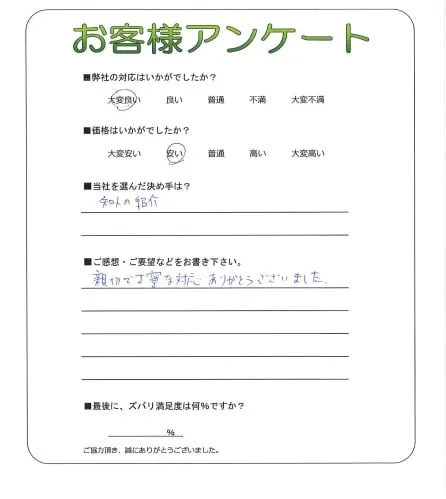 お客様アンケート
■弊社の対応はいかがでしたか？
大変良い 良い 普通 不満 大変不満
■価格はいかがでしたか？
大変安い 安い 普通 高い 大変高い
■当社を選んだ決め手は？
知人の紹介
■ご感想・ご要望などをお書き下さい。
親切で丁寧な対応ありがとうございました。
■最後に、ズバリ満足度は何%ですか？
%
ご協力頂き、誠にありがとうございました。